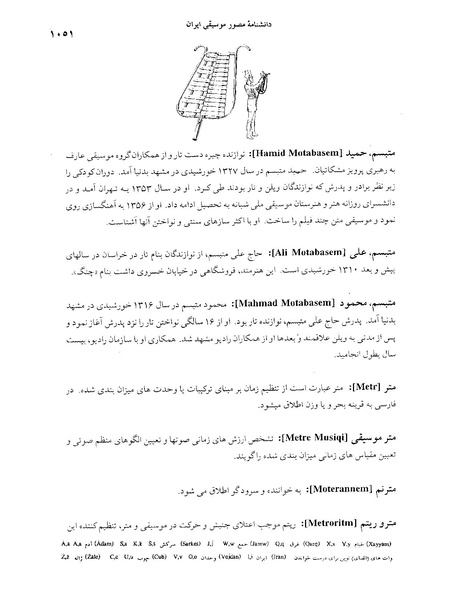 دانشنامهٔ مصور موسیقی ایران
۱۰۵۱
متبسم، حمید [Hamid Motabasem]: نوازنده چیره دست تار و از همکاران گروه موسیقی عارف
به رهبری پرویز مشکاتیان. حمید متبسم در سال ۱۳۳۷ خورشیدی در مشهد بدنیا آمد. دوران کودکی را
زیر نظر برادر و پدرش که نوازندگان ویلن و تار بودند طی کرد. او در سال ۱۳۵۳ به تهران آمد و در
دانشسرای روزانه هنر و هنرستان موسیقی ملی شبانه به تحصیل ادامه داد. او از ۱۳۵۶ به آهنگسازی روی
نمود و موسیقی متن چند فیلم را ساخت. او با اکثر سازهای سنتی و نواختن آنها آشناست.
متبسم، علی [Ali Motabasem]: حاج علی متبسم، از نوازندگان بنام تار در خراسان در سالهای
پیش و بعد ۱۳۱۰ خورشیدی است. این هنرمند، فروشگاهی در خیابان خسروی داشت بنام «چنگ».
متبسم، محمود [Mahmad Motabasem]: محمود متبسم در سال ۱۳۱۶ خورشیدی در مشهد
بدنیا آمد. پدرش حاج علی متبسم، نوازنده تار بود. او از ۱۶ سالگی نواختن تار را نزد پدرش آغاز نمود و
پس از مدتی به ویلن علاقمند و بعدها او از همکاران رادیو مشهد شد. همکاری او با سازمان رادیو، بیست
سال بطول انجامید.
متر [Metr]: متر عبارت است از تنظیم زمان بر مبنای ترکیبات یا وحدت های میزان بندی شده. در
فارسی به قرینه بحر و یا وزن اطلاق میشود.
متر موسیقی [Metre Musiqi]: تشخص ارزش های زمانی صوتها و تعیین الگوهای منظم صوتی و
تعیین مقیاس های زمانی میزان بندی شده را گویند.
مترنم [Moterannem]: به خواننده و سرودگو اطلاق می شود.
مترو ریتم [Metroritm]: ریتم موجب اعتلای جنبش و حرکت در موسیقی و متر، تنظیم کننده این